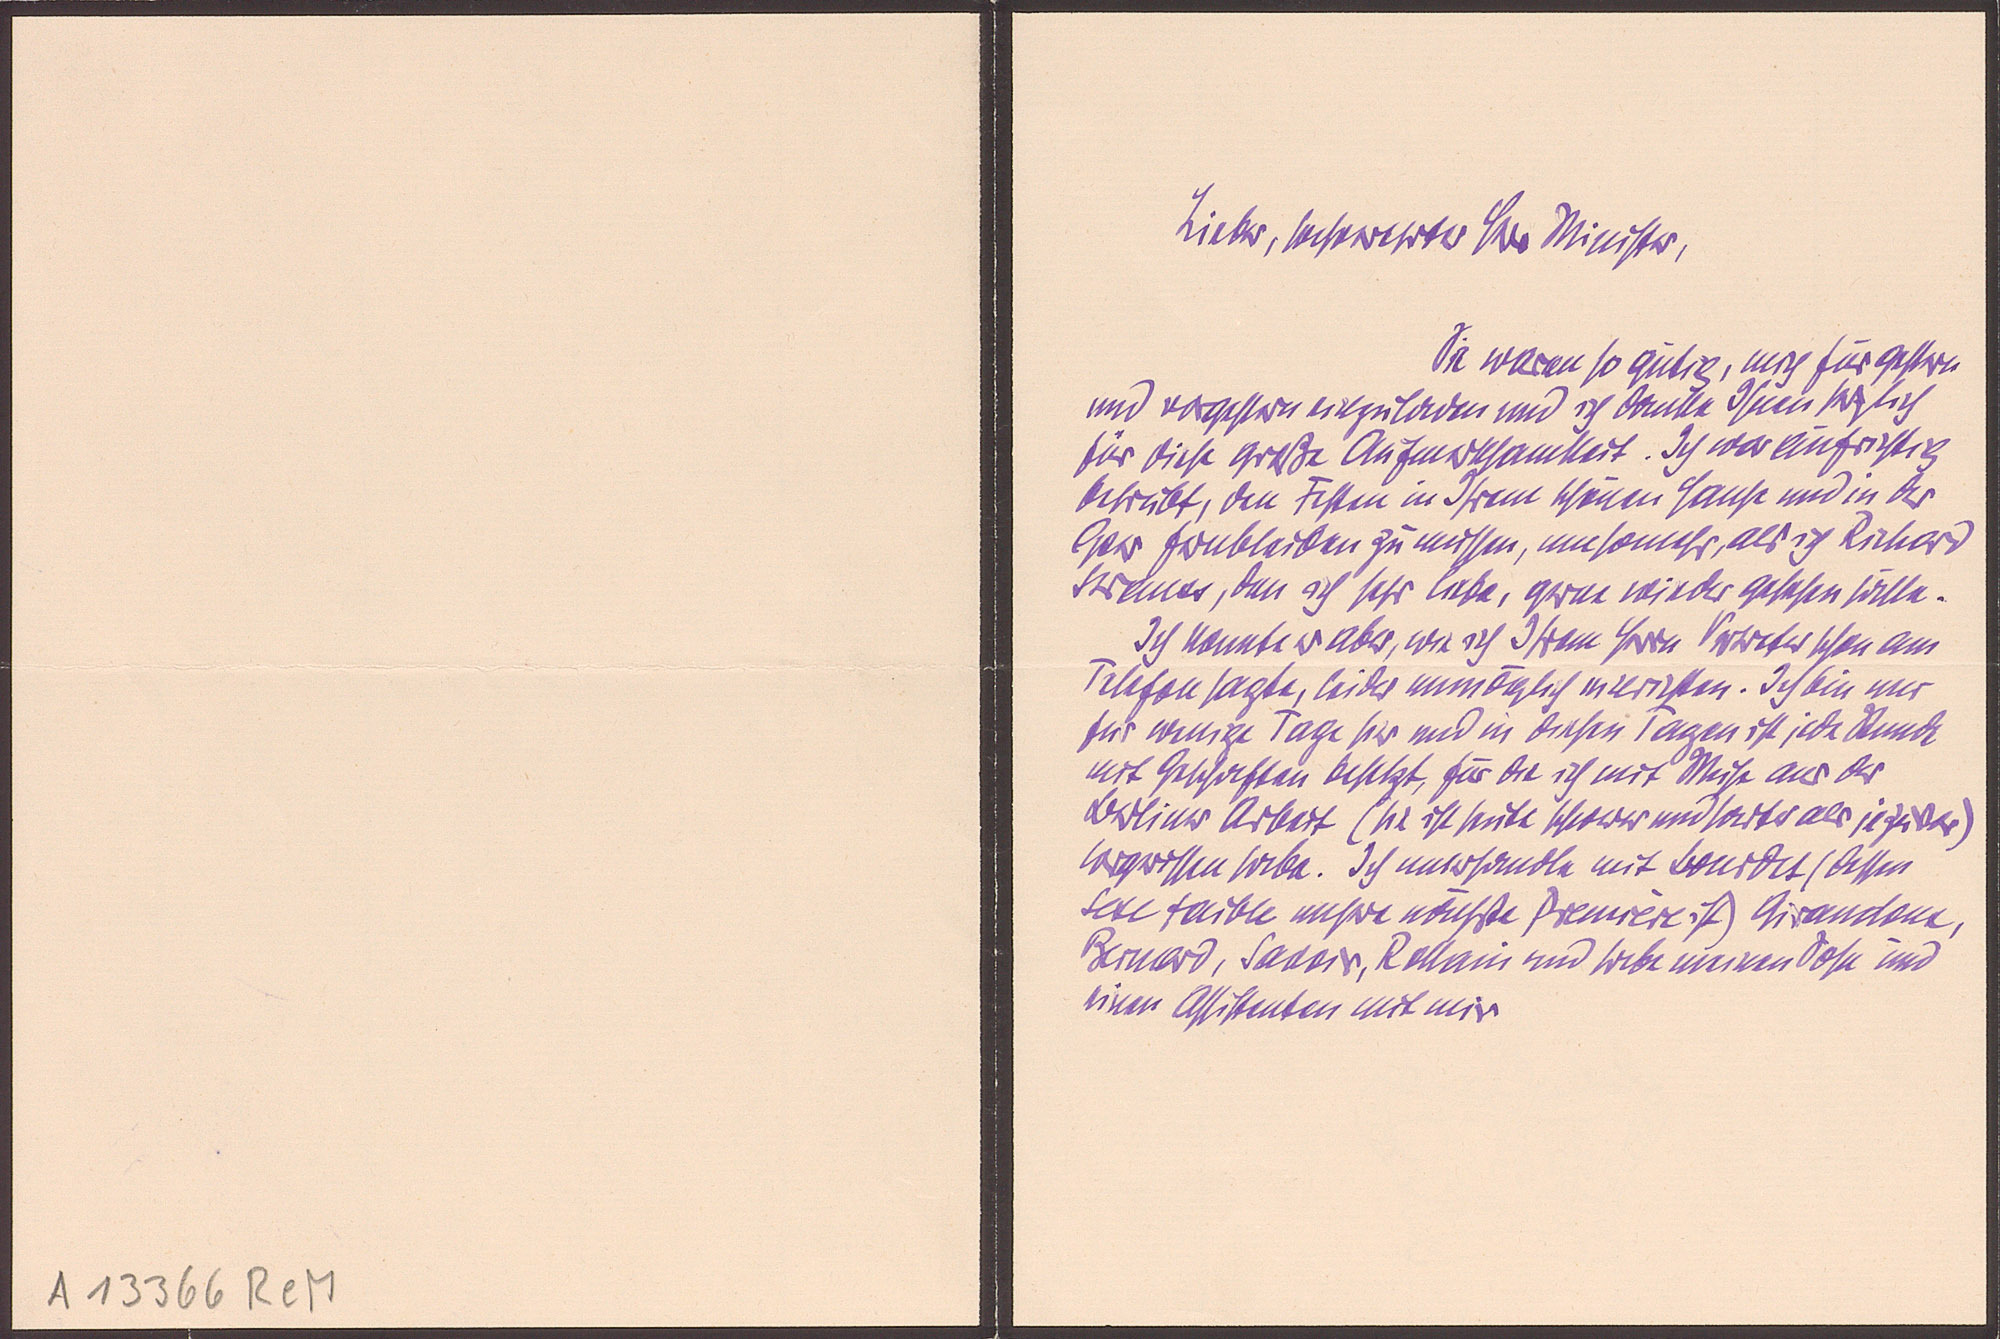 Lieber, hochverehrter Herr Minister,
Sie waren so gütig, mich für gestern
und vorgestern einzuladen und ich danke Ihnen herzlich
für diese große Aufmerksamkeit. Ich war aufrichtig
betrübt, den Festen in Ihrem schönen Hause und in der
Oper fernbleiben zu müssen, umsomehr, als ich Richard
Strauss, den ich sehr liebe, gerne wieder gesehen hätte.
Ich konnte es aber, wie ich Ihrem Herrn Vertreter schon am
Telefon sagte, leider unmöglich einrichten. Ich bin nur
für wenige Tage hier und in diesen Tagen ist jede Stunde
mit Geschäften besetzt, für die ich mit Mühe aus der
Berliner Arbeit (sie ist heute schwerer und härter als je zuvor)
losgerissen habe. Ich unterhandle mit Bourdet (dessen
Sexe faible unsre nächste Première ist) Giraudoux,
Bernard, Savoir, Rolland und habe meinen Sohn und
einen Assistenten mit mir
A 13366 ReM